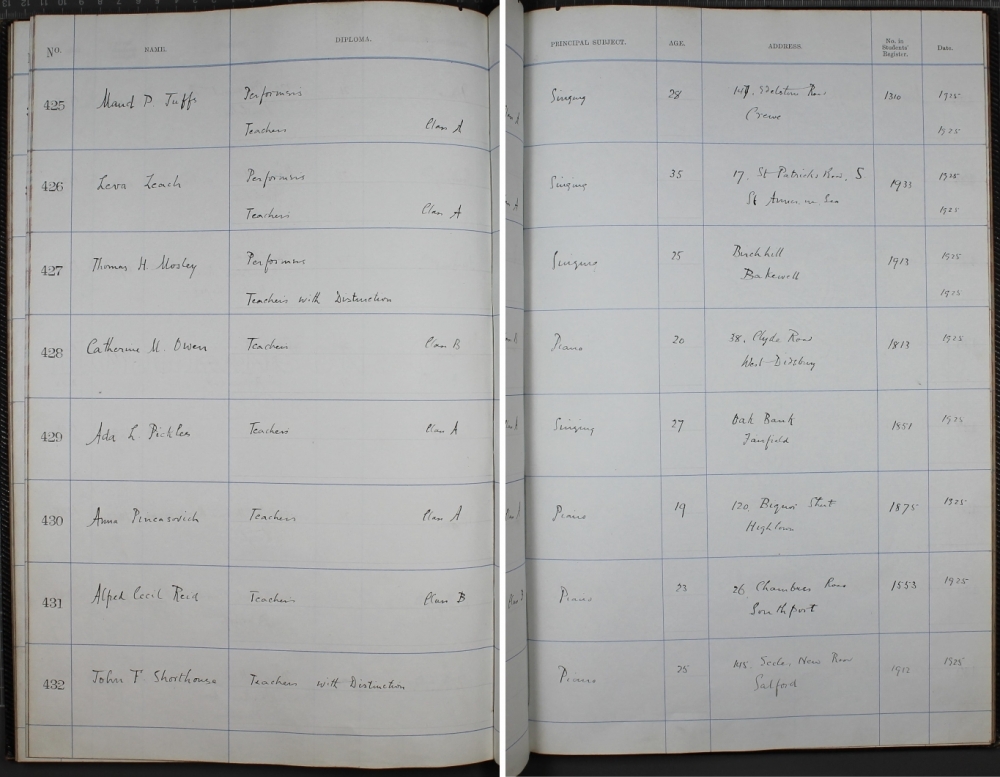 No. NAME. DIPLOMA. PRINCIPAL SUBJECT. AGE. ADDRESS. No. in Students' Register. Date.
425 Maud P Tuffs Performers Singing 28 1310 1925
Teachers Class A Crewe 1925
426 Lena Leach Performers Singing 35 17, St Patricks Road. S 1933 1925
Teachers Class A St Annes on Sea 1925
427 Thomas H. Mosley Performers Singing 25 Birchhill 1913 1925
Teachers with Distinction Bakewell 1925
428 Catherine M. Owen Teachers Class B Piano 20 38, Clyde Road 1813 1925
West Didsbury
429 Ada L Pickles Teachers Class A Singing 27 Oak Bank 1851 1925
430 Anna Pineasovich Teachers Class A Piano 19 120, Street 1875 1925
Hightown
431 Alfred Cecil Reid Teachers Class B Piano 23 26 Chambres Road 1553 1925
Southport
432 John F Shorthouse Teachers with Distinction Piano 25 New Road 1912 1925
Salford